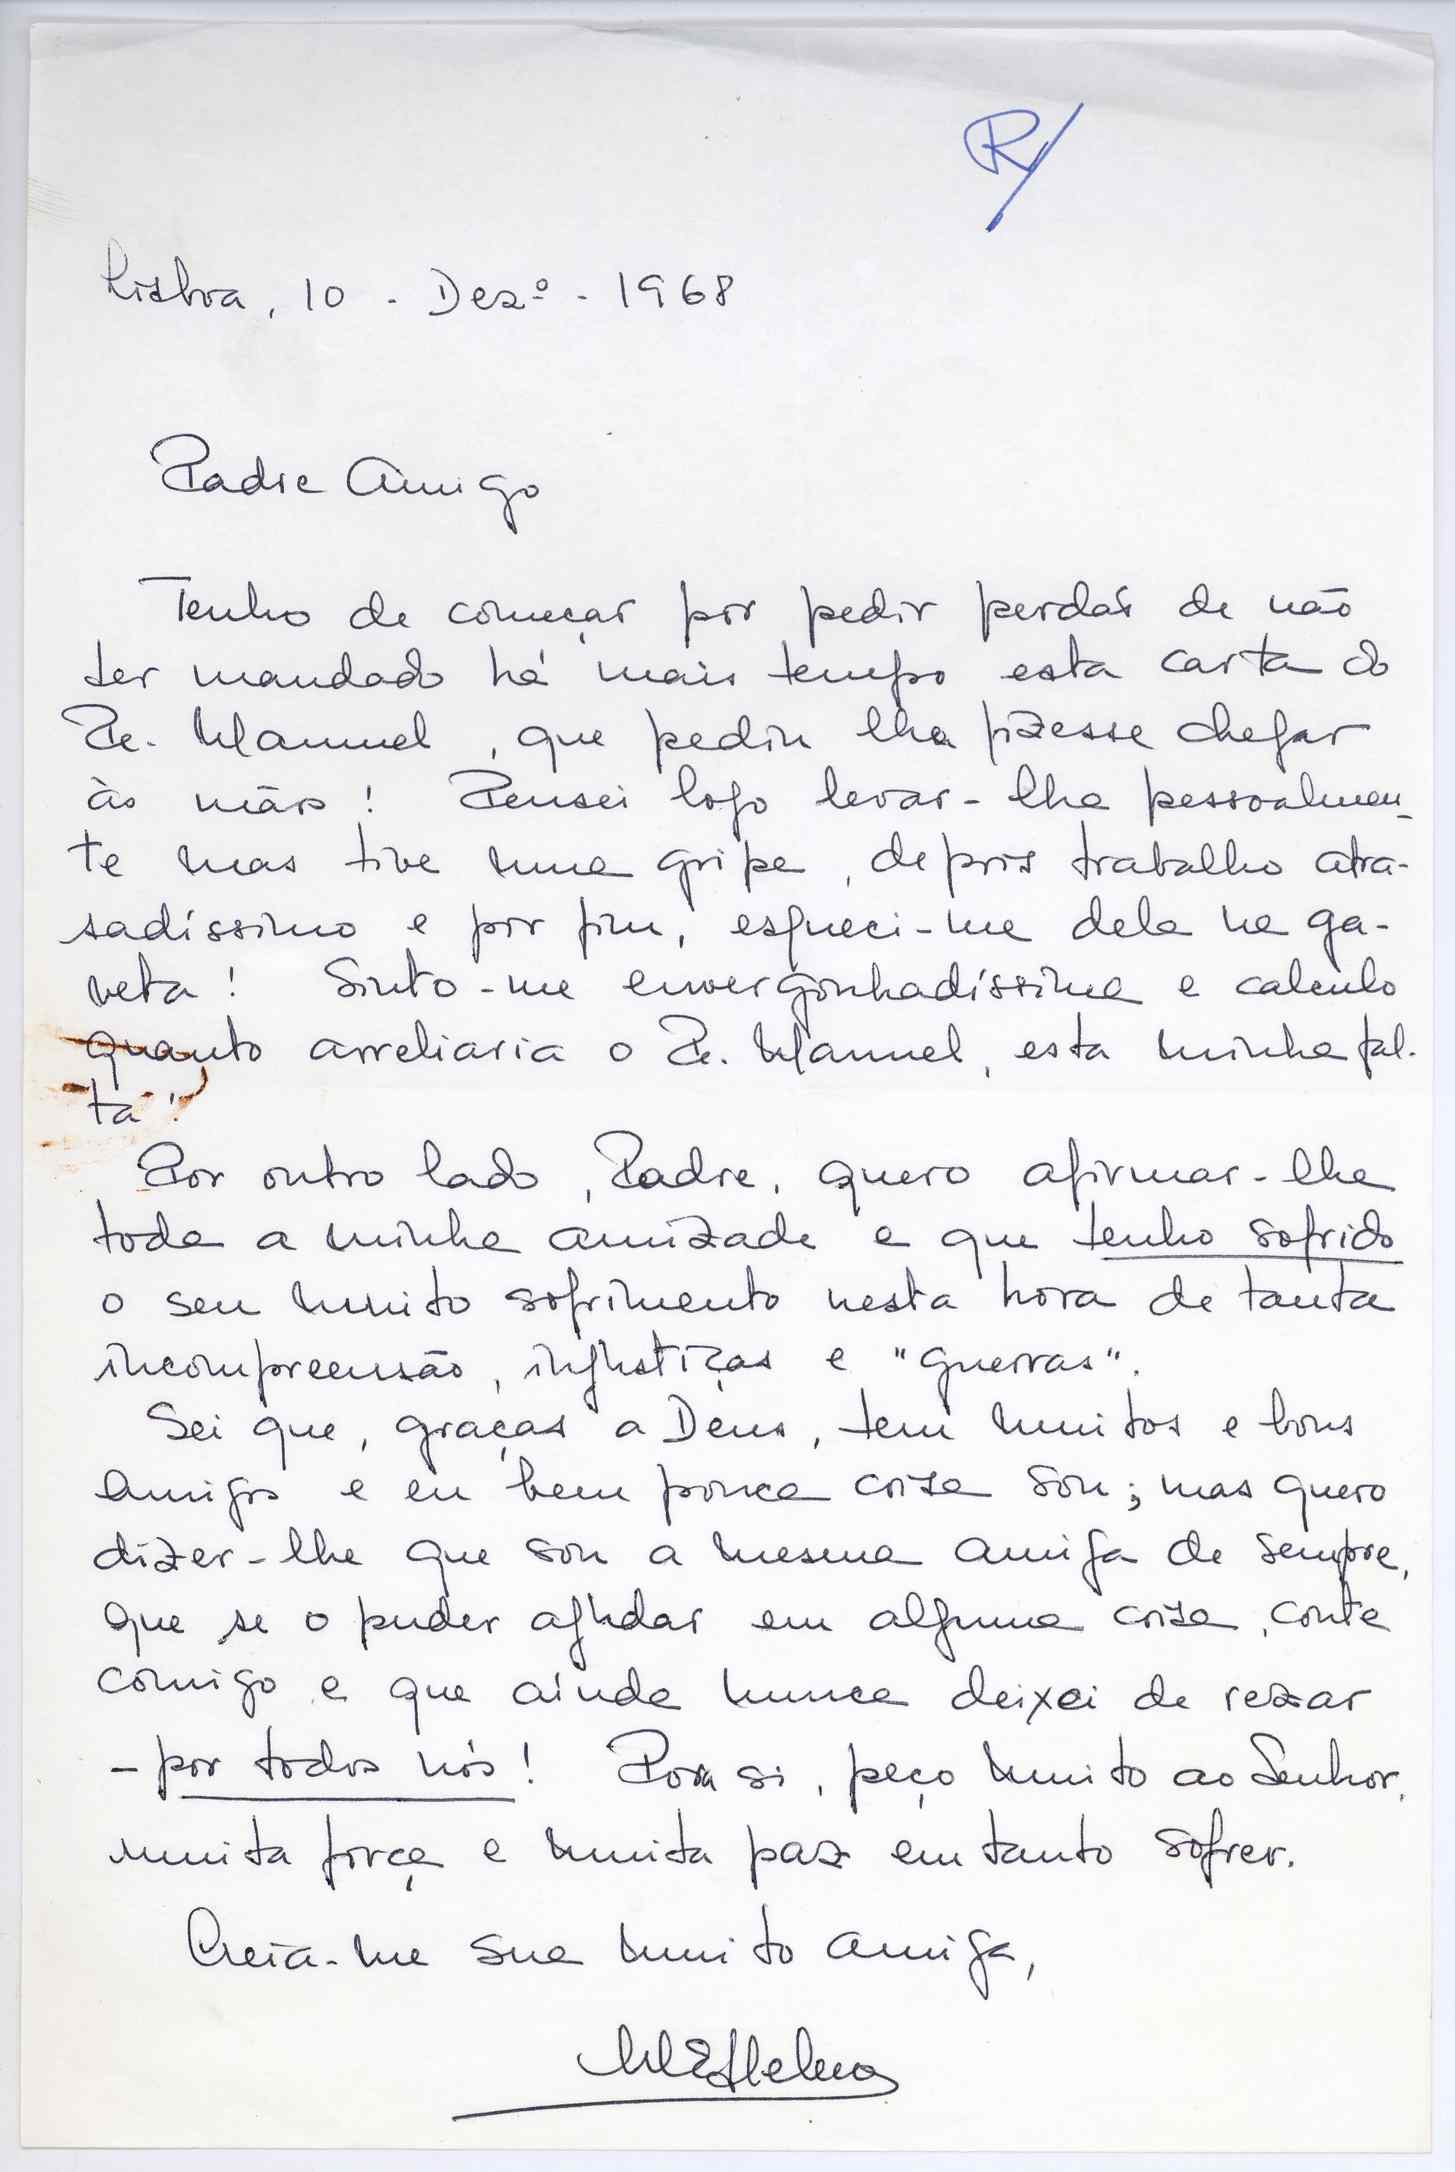 R/
Lisboa, 10 - Dezº - 1968
Padre Amigo
Tenho de começar por pedir perdão de não
ter mandado há mais tempo esta carta do
Pe. Manuel, que pediu lha fizesse chegar
às mãos! Pensei logo levar-lha pessoalmen-
te mas tive uma gripe, depois trabalho atra-
sadíssimo e por fim, esqueci-me dela na ga-
veta! Sinto-me envergonhadíssima e calculo
quanto arreliaria o Pe. Manuel, esta minha fal-
ta!
Por outro lado, Padre, quero afirmar-lhe
toda a minha amizade e que tenho sofrido
o seu muito sofrimento nesta hora de tanta
incompreensão, injustiças e "guerras".
Sei que, graças a Deus, tem muitos e bons
amigos e eu bem pouca coisa sou; mas quero
dizer-lhe que sou a mesma amiga de sempre,
que se o puder ajudar em alguma coisa, conte
comigo e que ainda nunca deixei de rezar
- por todos nós! Para si, peço muito ao Senhor,
muita força e muita paz em tanto sofrer.
Creia-me sua muito amiga,
Mª Helena